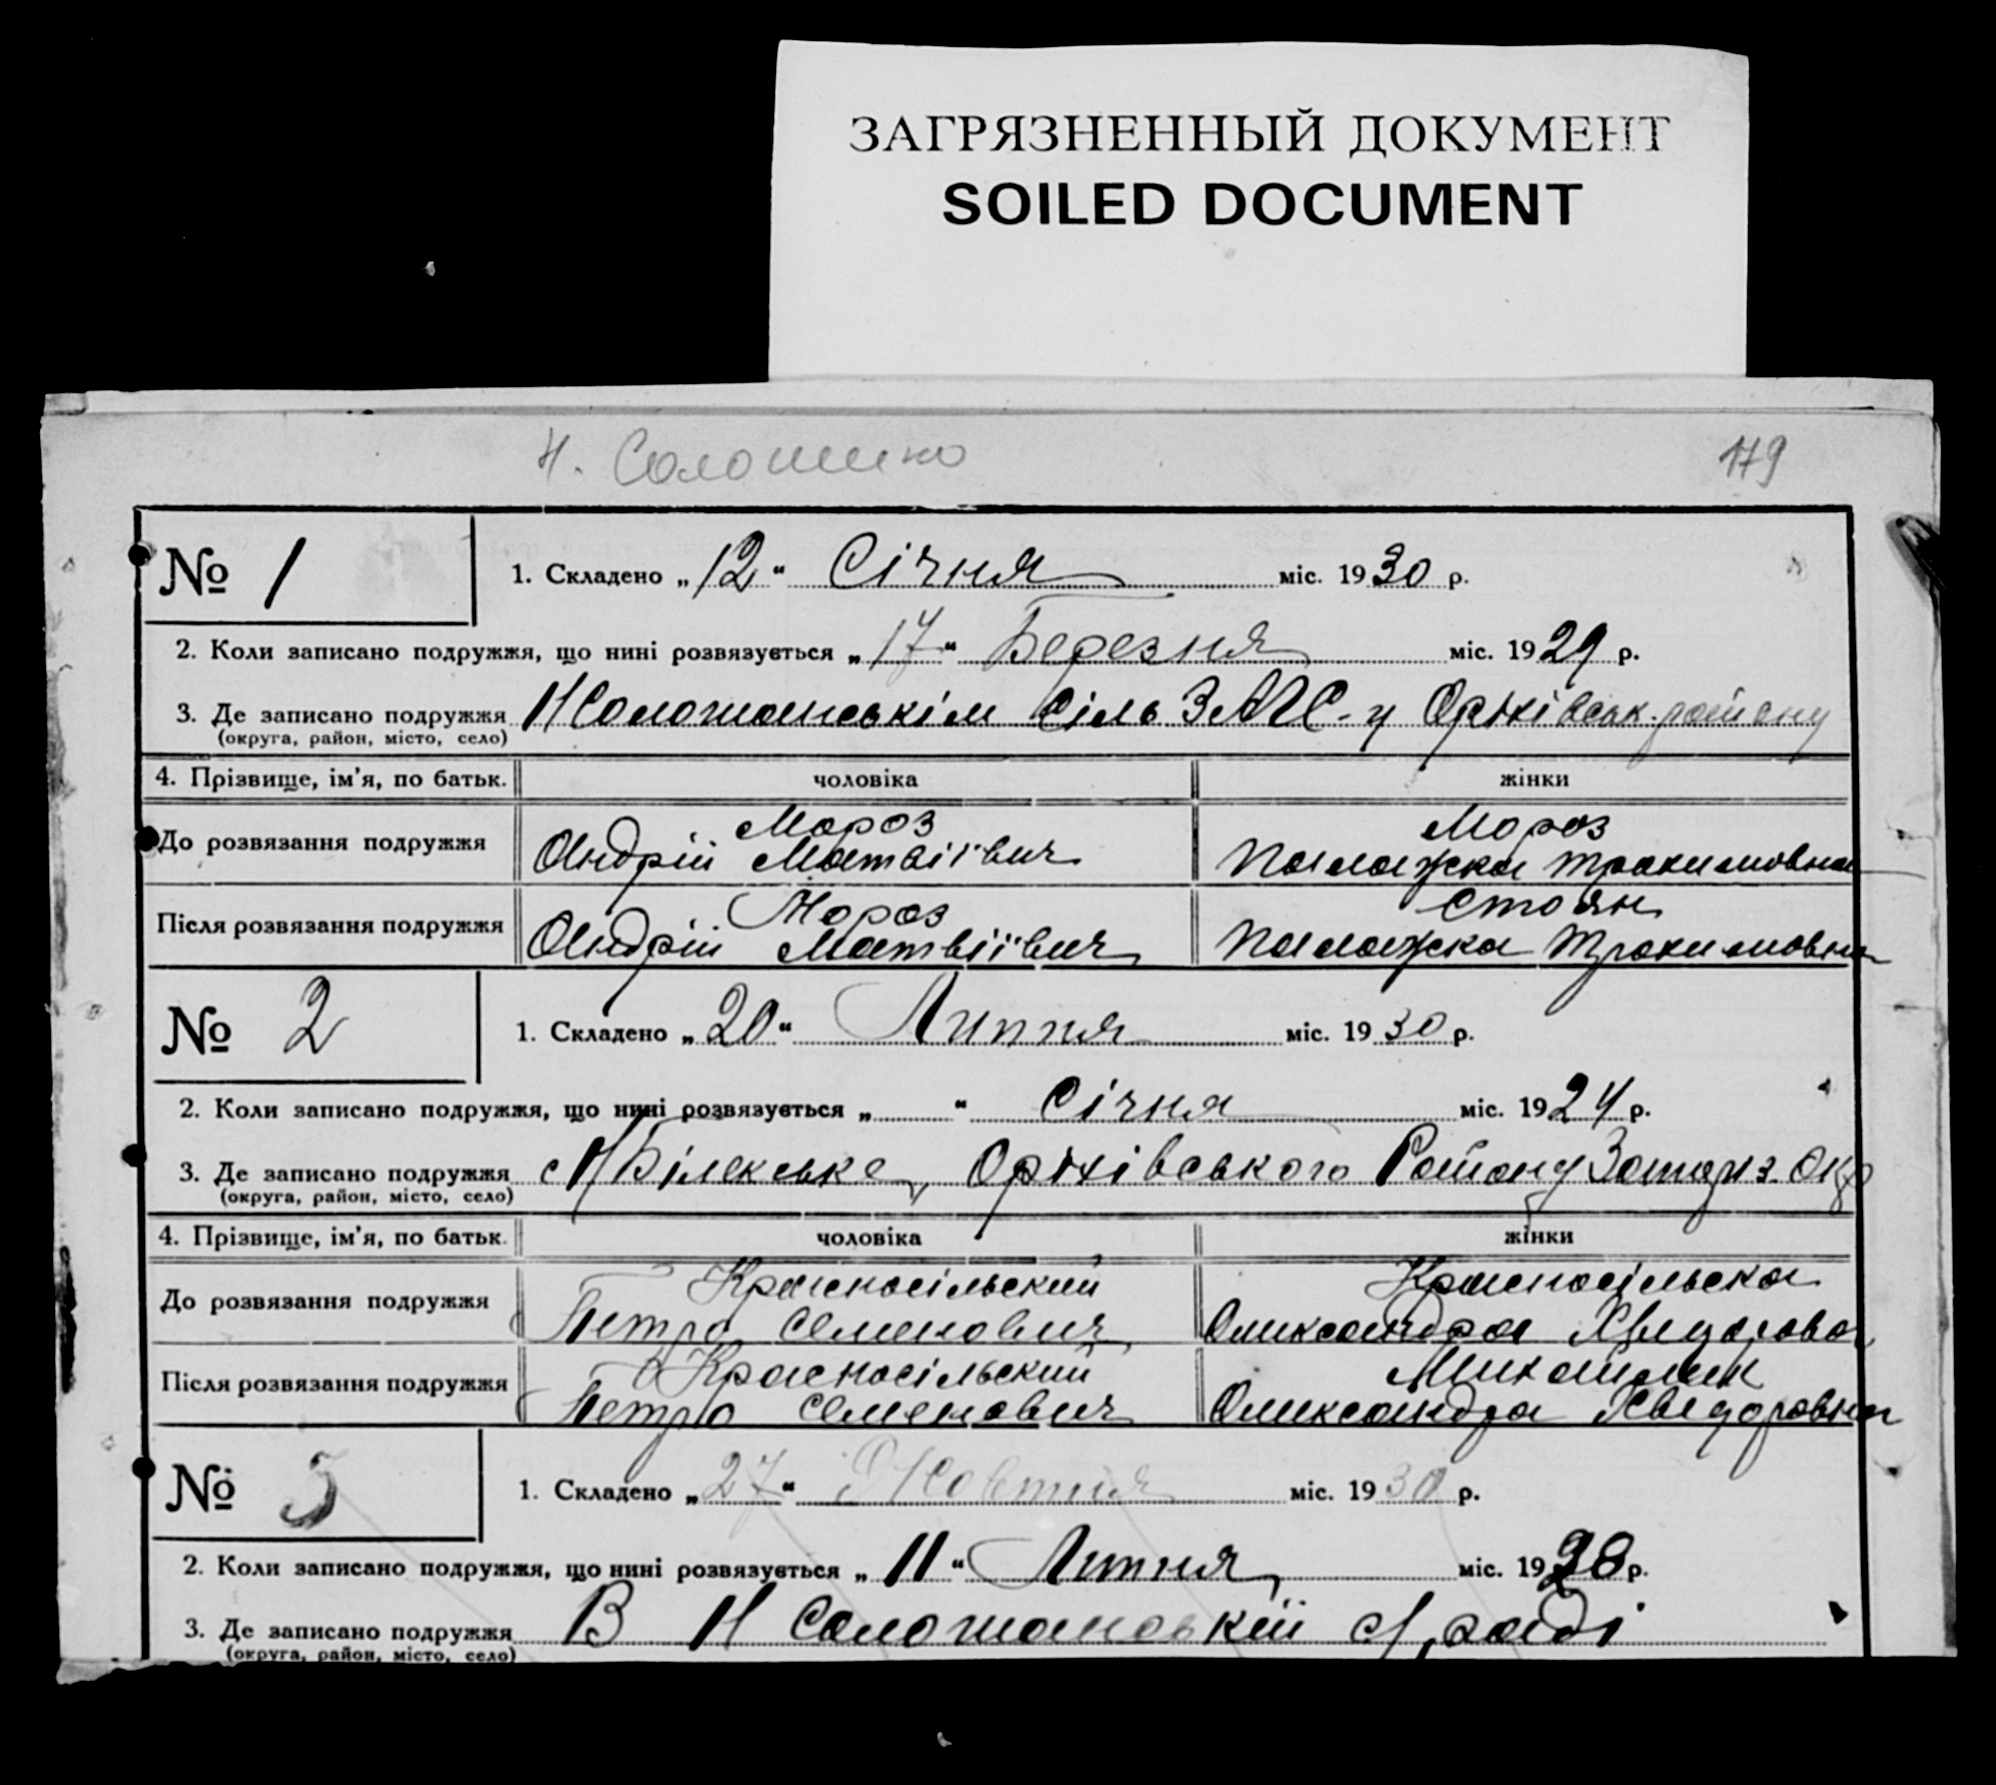 ЗАГРЯЗНЕННЫЙ ДОКУМЕНТ
SOILED DOCUMENT
Н. Солошино
179
№ 1
1. Складено „12“ Січня міс. 1930 р.
2. Коли записано подружжя, що нині розвязується „17“ Березня міс. 1929 р.
3. Де записано подружжя Н Солошанськім сіль ЗАГС-у
(округа, район, місто, село)
4. Прізвище, ім'я, по батьк. чоловіка жінки
Мороз Мороз
До розвязання подружжя Андрій Матвіївич Палажка Трохимовна
Мороз Стоян
Після розвязання подружжя Андрій Матвіївич Палажка Трохимовна
№ 2
1. Складено „20“ Липня міс. 1930 р.
2. Коли записано подружжя, що нині розвязується „ “ Січня міс. 1924 р.
3. Де записано подружжя
(округа, район, місто, село)
4. Прізвище, ім'я, по батьк. чоловіка жінки
Красносільский Красносільска
До розвязання подружжя Петро Семенович Олександра
Красносільский Михайлик
Після розвязання подружжя Петро Семенович Олександра Хведоровна
№ 3
1. Складено „27“ Жовтня міс. 1930 р.
2. Коли записано подружжя, що нині розвязується „11“ Липня міс. 1928 р.
3. Де записано подружжя В Н Солошанській с/раді
(округа, район, місто, село)